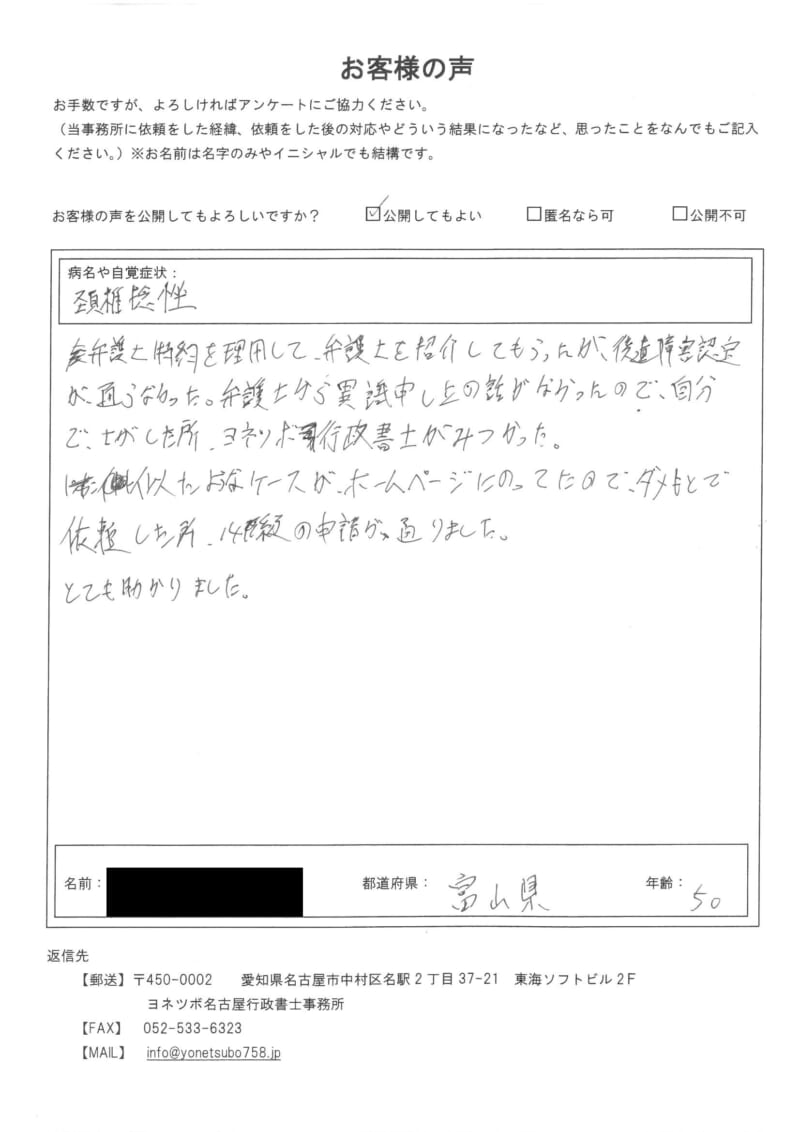 お客様の声
お手数ですが、よろしければアンケートにご協力ください。
（当事務所に依頼をした経緯、依頼をした後の対応やどういう結果になったなど、思ったことをなんでもご記入
ください。）※お名前は名字のみやイニシャルでも結構です。
お客様の声を公開してもよろしいですか？ ☑公開してもよい □匿名なら可 □公開不可
病名や自覚症状：
頚椎捻挫
弁護士特約を理用して、弁護士を紹介してもらったが、後遺障害認定
が、通らなかった。弁護士から異識申し立の話がなかったので、自分
で、さがした所、ヨネツボ行政書士がみつかった。
似たようなケースが、ホームページにのってたので、ダメもとで
依頼した所、14級の申請が通りました。
とても助かりました。
名前： 都道府県：富山県 年齢：50
返信先
【郵送】〒450-0002 愛知県名古屋市中村区名駅２丁目37-21 東海ソフトビル２F
ヨネツボ名古屋行政書士事務所
【FAX】 052-533-6323
【MAIL】 info@yonetsubo758.jp